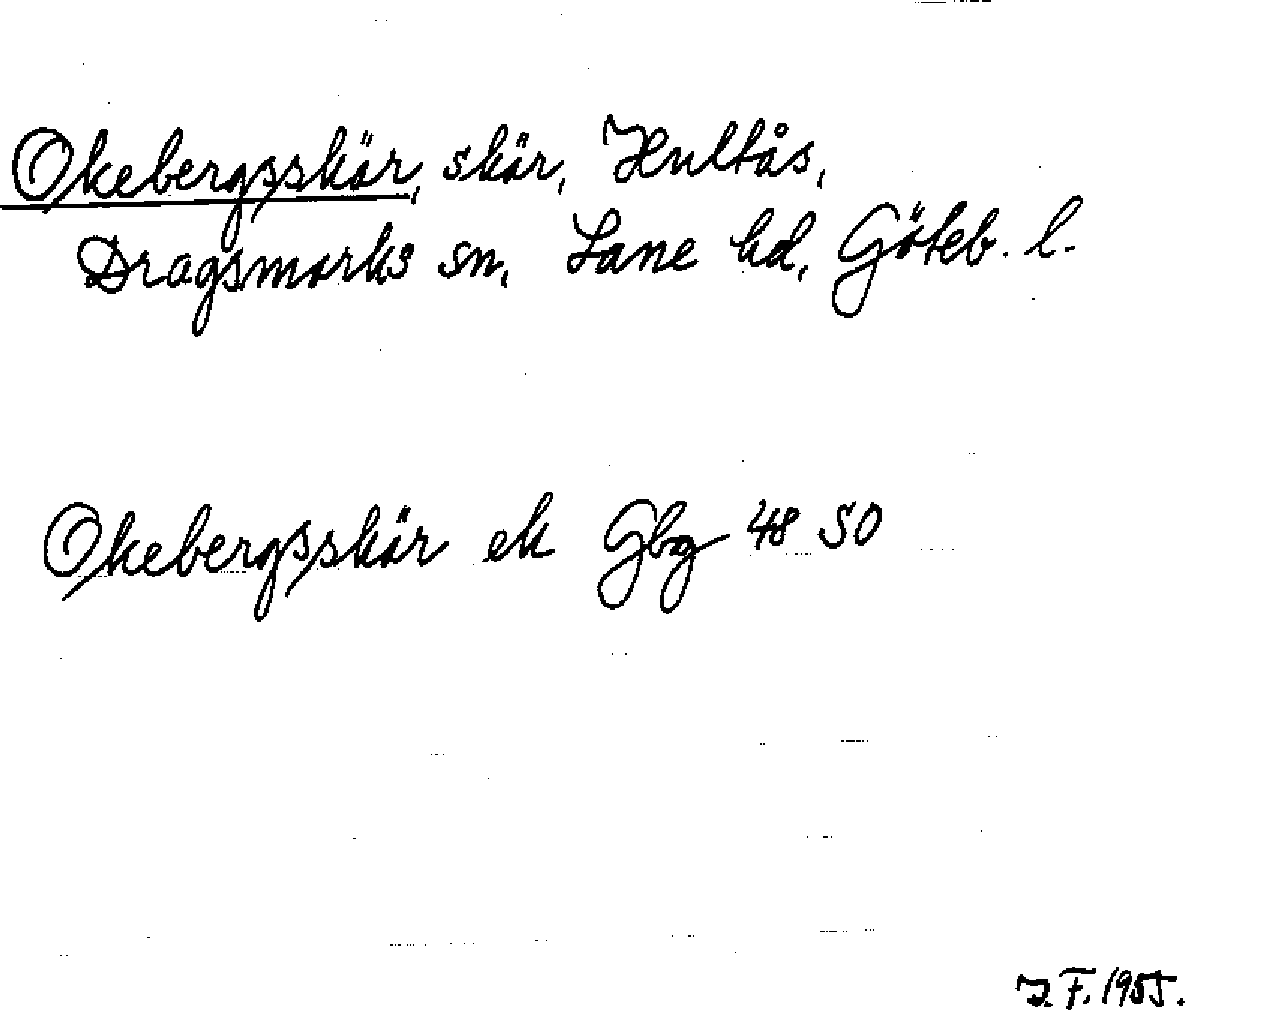 Okebergsskär, skär, Hultås,
Dragsmarks sn, Lane hd, Göteb. l.
Okebergsskär ek Gbg 48 SO
J. F. 1955.